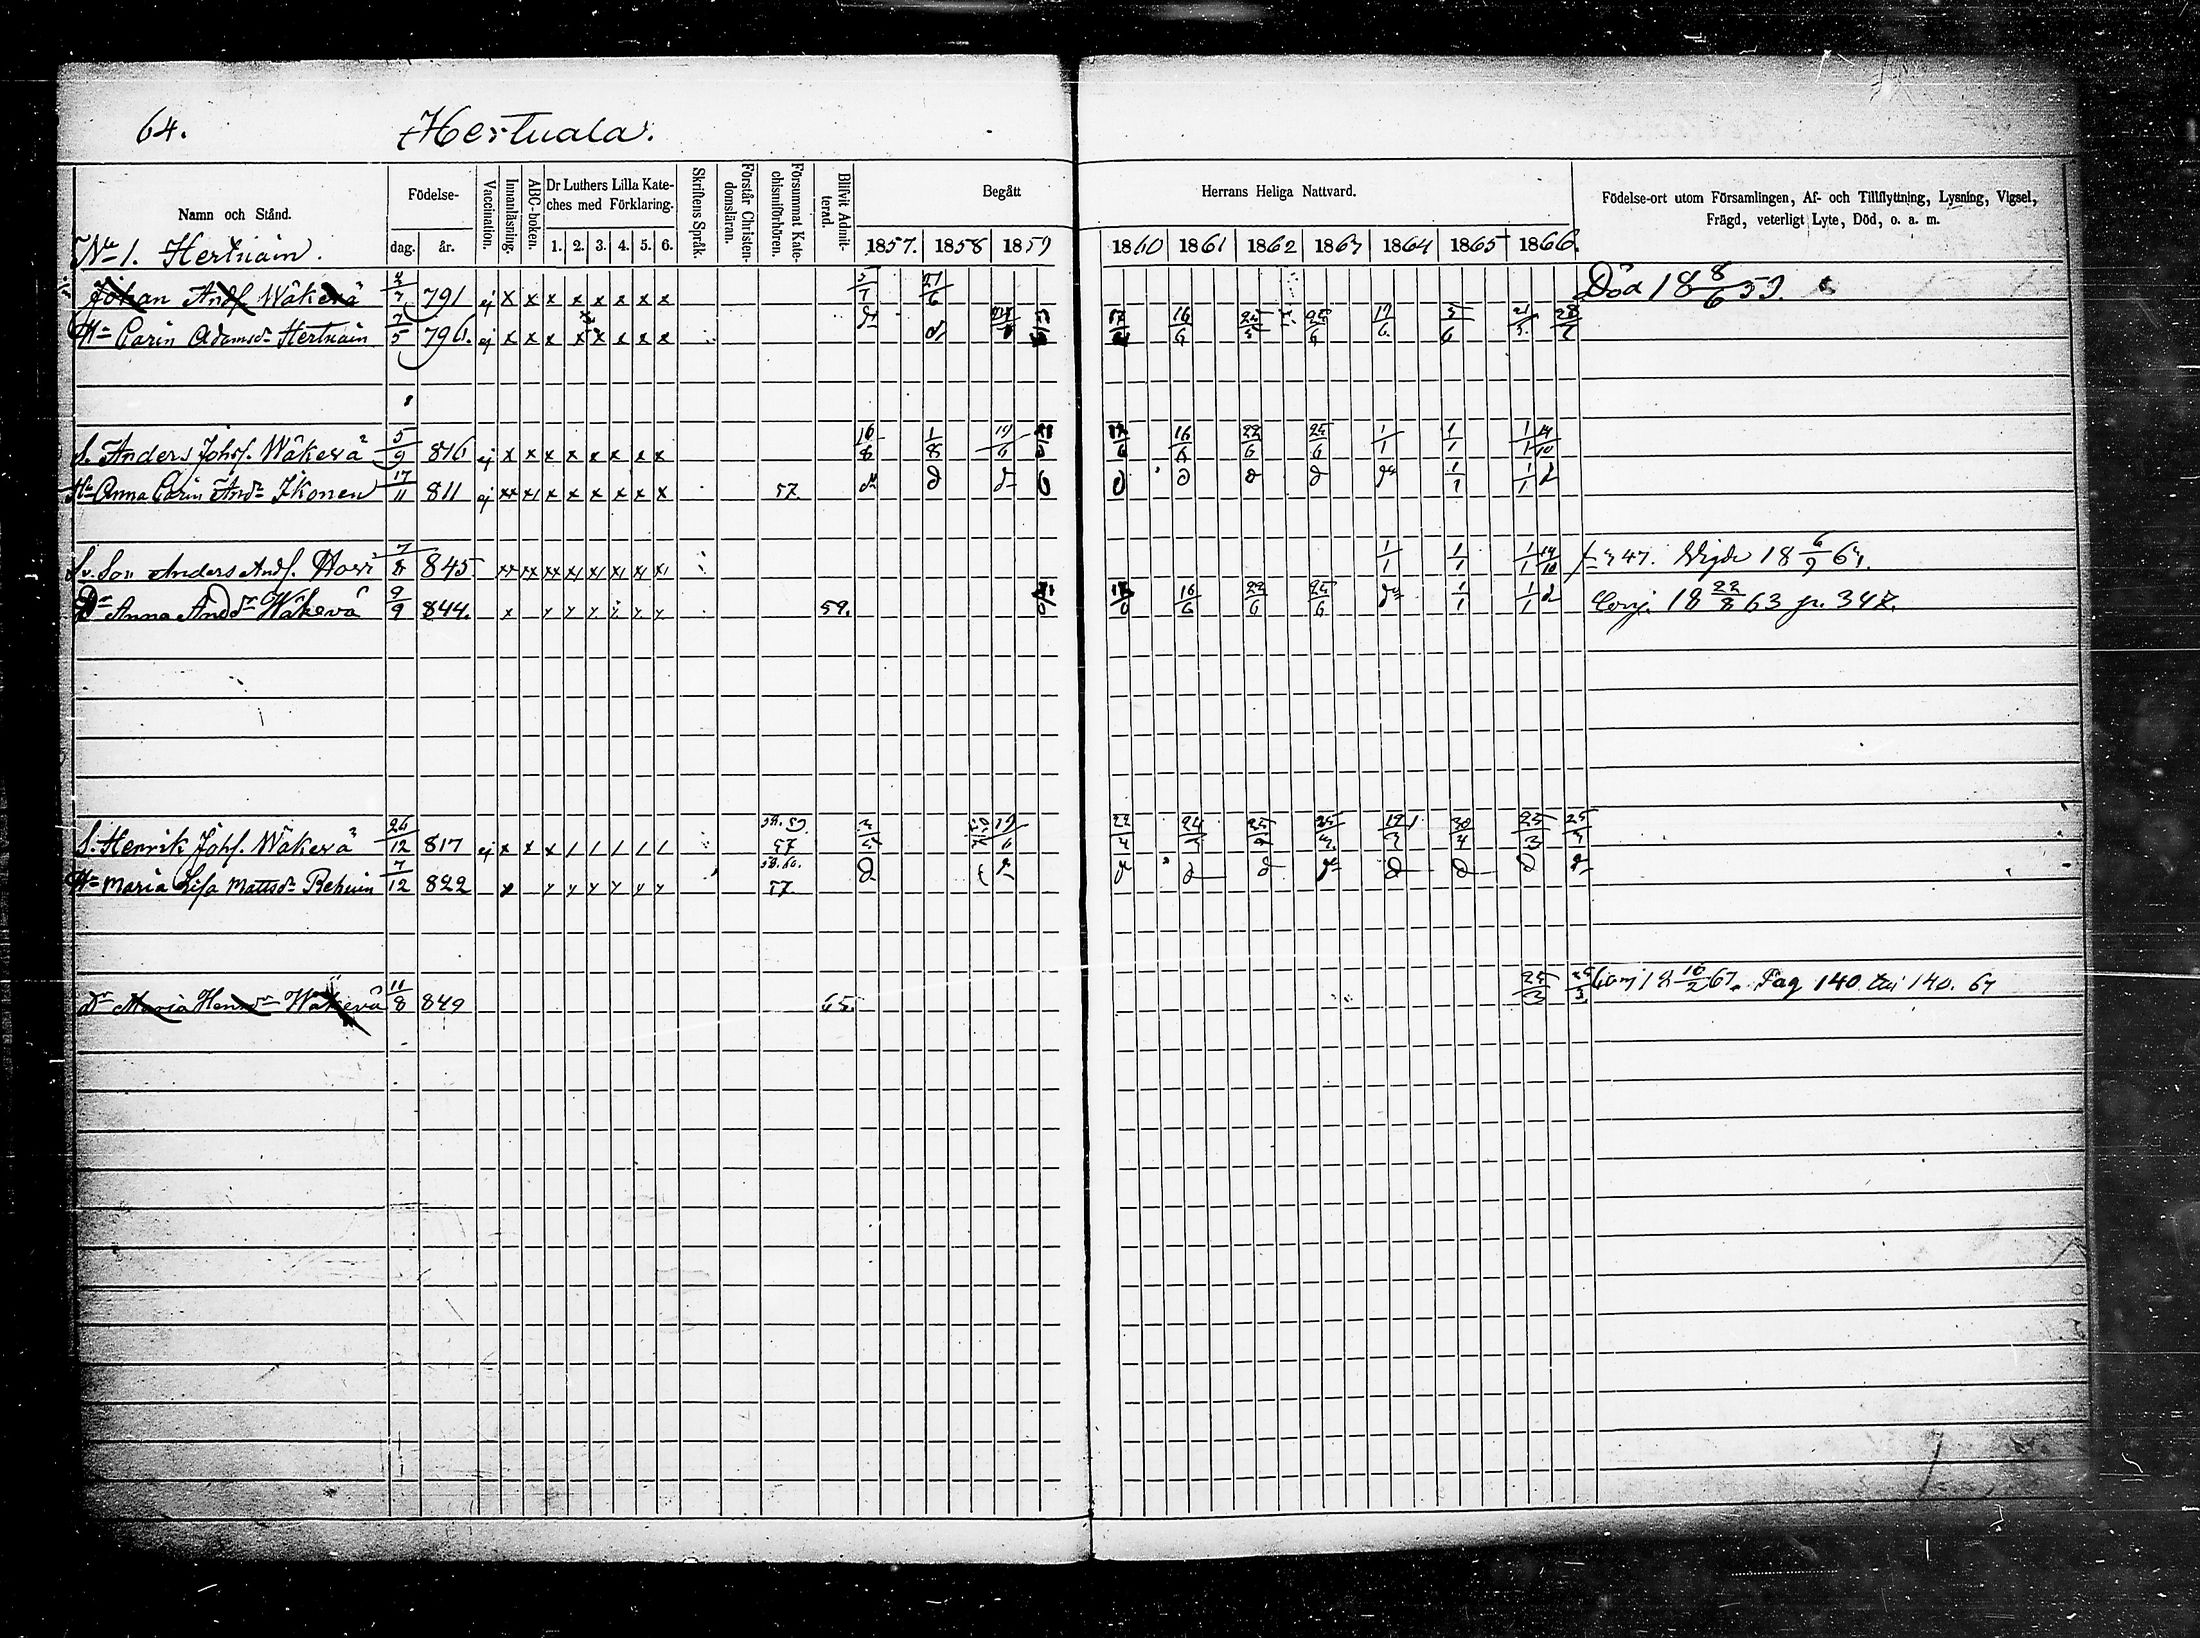 64. Hertuala.
Namn och Stånd. Födelse- dag. år. Vaccination. Innanläsning. ABC-boken. Dr Luthers Lilla Kateches med Förklaring. 1. 2. 3. 4. 5. 6. Skriftens Språk. Förstår Christendomsläran. Försummat Katechismiförhören. Blifvit Admitterad. Begått Herrans Heliga Nattvard. Födelse-ort utom Församlingen, Af- och Tillflyttning, Lysning, Vigsel, Frägd, veterligt Lyte, Död, o. a. m.
1857. 1858 1859 1860 1861 1862 1863 1864 1865 1866.
No 1. Hertuain.
Johan Andf. Wäkevä 791 ej x x x x x x x x 27/6 Död 18 8/6 59.
Hu Carin Adamsdr Hertuain 7/5 796. ej x x x x x x x x 16/6 25/5 25/6 17/6 5/6 21/5
S. Anders Johsf. Wäkevä 5/9 816 ej x x x x x x x x 16/8 1/8 19/6 16/6 22/6 25/6 1/1 1/1 1/1 14/10
Hu Anna Carin Andr Ikonen 17/11 811 ej xx x x x x x x 57. d d d d d d d 1/1 1/1 d
Sv. Son Anders Andf. Hovi 7/8 845 xx xx xx x x x x x x 1/1 1/1 1/1 14/10 47. Vigde 18 6/9 64.
Dr Anna Anddr Wäkevä 9/9 844. x y y y y y y 59. 16/6 22/6 25/6 d 1/1 1/1 d Conj. 18 22/8 63 p. 347.
S. Henrik Johf. Wäkevä 26/12 817 ej x x x / / / / / 58. 59. 57 19/6 22/4 24/3 25/4 12/3 30/4 25/3 25/3
Hu Maria Lisa Mattsdr Rehuin 7/12 822 x y y y y y y 58. 60. 57. d d d d d d d d d
Dr Maria Henrdr Wäkevä 11/8 849 65. 25/3 25/3 Conj 18 10/2 67. Pag 140 140. 67